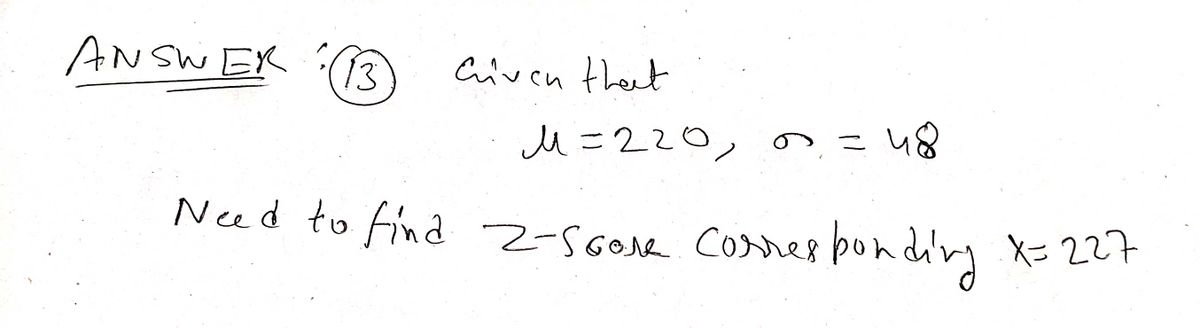 ANSWER :(13) Given that
μ = 220, σ = 48
Need to find Z-Score Corresponding X= 227